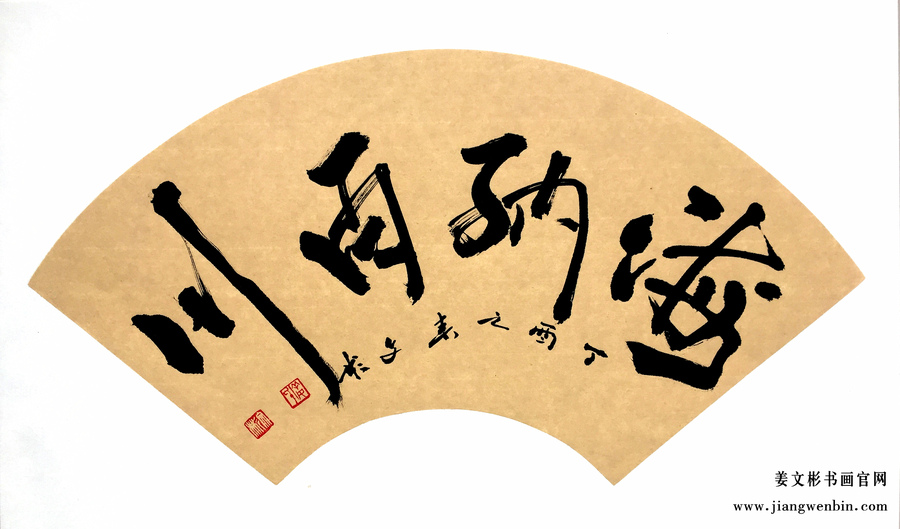 海纳百川
丁酉之春文彬
姜文彬书画官网
www.jiangwenbin.com